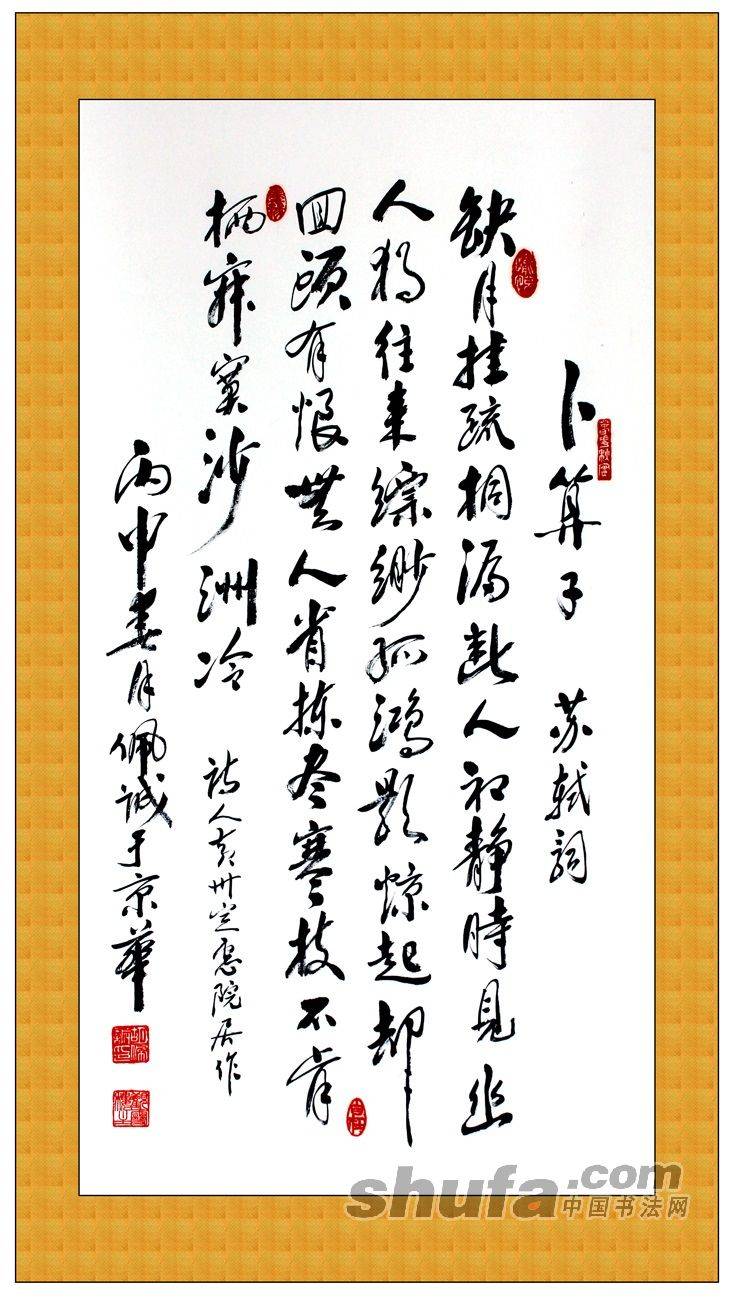 卜算子 苏轼詞
缺月挂疏桐漏断人初静時見幽
人独往来缥缈孤鸿影惊起却
回頭有恨無人省拣尽寒枝不肯
栖寂寞沙洲冷 诗人黄州定惠院居作
丙申春月佩诚于京華
shufa.com
中国书法网